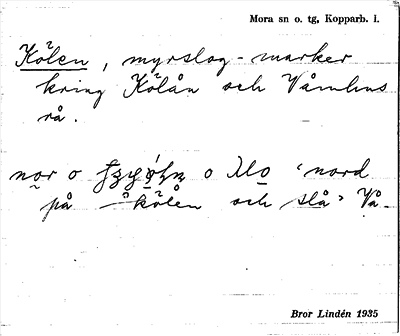 Mora sn o. tg, Kopparb. l.
Kölen, myrslog-marker
kring Kölån och Våmhus
rå.
nor o o slo 'nord
på kölen och slå' Vå.
Bror Lindén 1935